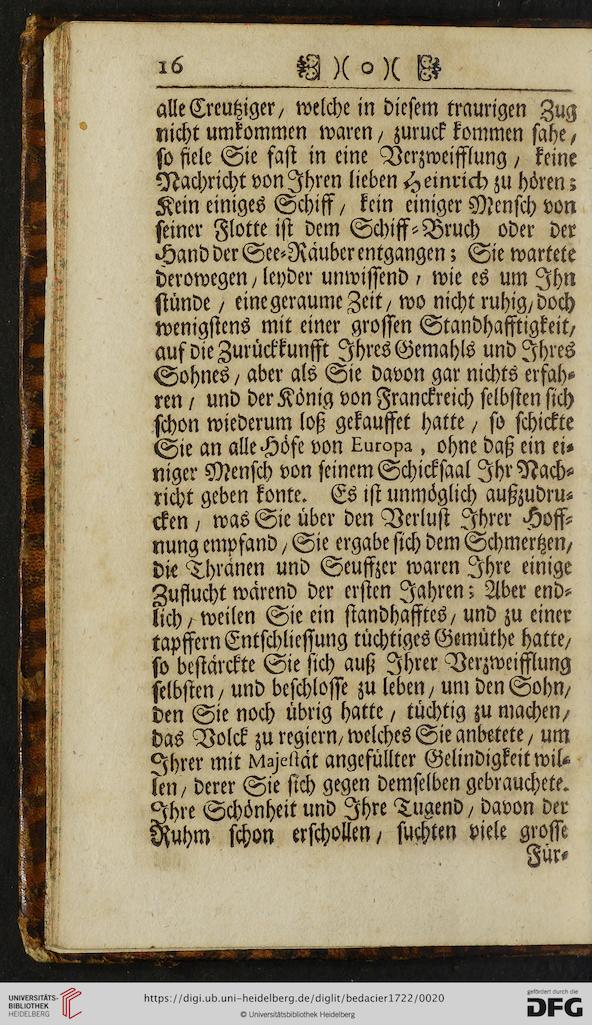 16 )( o )(
alle Creutziger / welche in diesem traurigen Zug
nicht umkommen waren / zuruck kommen sahe /
so fiele Sie fast in eine Verzweifflung / keine
Nachricht von Ihren lieben Heinrich zu hören;
Kein einiges Schiff / kein einiger Mensch von
seiner Flotte ist dem Schiff-Bruch oder der
Hand der See-Räuber entgangen; Sie wartete
derowegen / leyder unwissend / wie es um Ihn
stünde / eine geraume Zeit / wo nicht ruhig / doch
wenigstens mit einer grossen Standhafftigkeit /
auf die Zurückkunfft Ihres Gemahls und Ihres
Sohnes / aber als Sie davon gar nichts erfah-
ren / und der König von Franckreich selbsten sich
schon wiederum loß gekauffet hatte / so schickte
Sie an alle Höfe von Europa , ohne daß ein ei-
niger Mensch von seinem Schicksaal Ihr Nach-
richt geben konte. Es ist unmöglich außzudru-
cken / was Sie über den Verlust Ihrer Hoff-
nung empfand / Sie ergabe sich dem Schmertzen /
die Thränen und Seuffzer waren Ihre einige
Zuflucht wärend der ersten Jahren; Aber end-
lich / weilen Sie ein standhafftes / und zu einer
tapffern Entschliessung tüchtiges Gemüthe hatte /
so bestärckte Sie sich auß Ihrer Verzweifflung
selbsten / und beschlosse zu leben / um den Sohn /
den Sie noch übrig hatte / tüchtig zu machen /
das Volck zu regiern / welches Sie anbetete / um
Ihrer mit Majestät angefüllter Gelindigkeit wil-
len / derer Sie sich gegen demselben gebrauchete.
Ihre Schönheit und Ihre Tugend / davon der
Ruhm schon erschollen / suchten viele grosse
Für-
UNIVERSITÄTS-
BIBLIOTHEK
HEIDELBERG
https://digi.ub.uni-heidelberg.de/diglit/bedacier1722/0020
© Universitätsbibliothek Heidelberg
gefördert durch die
DFG